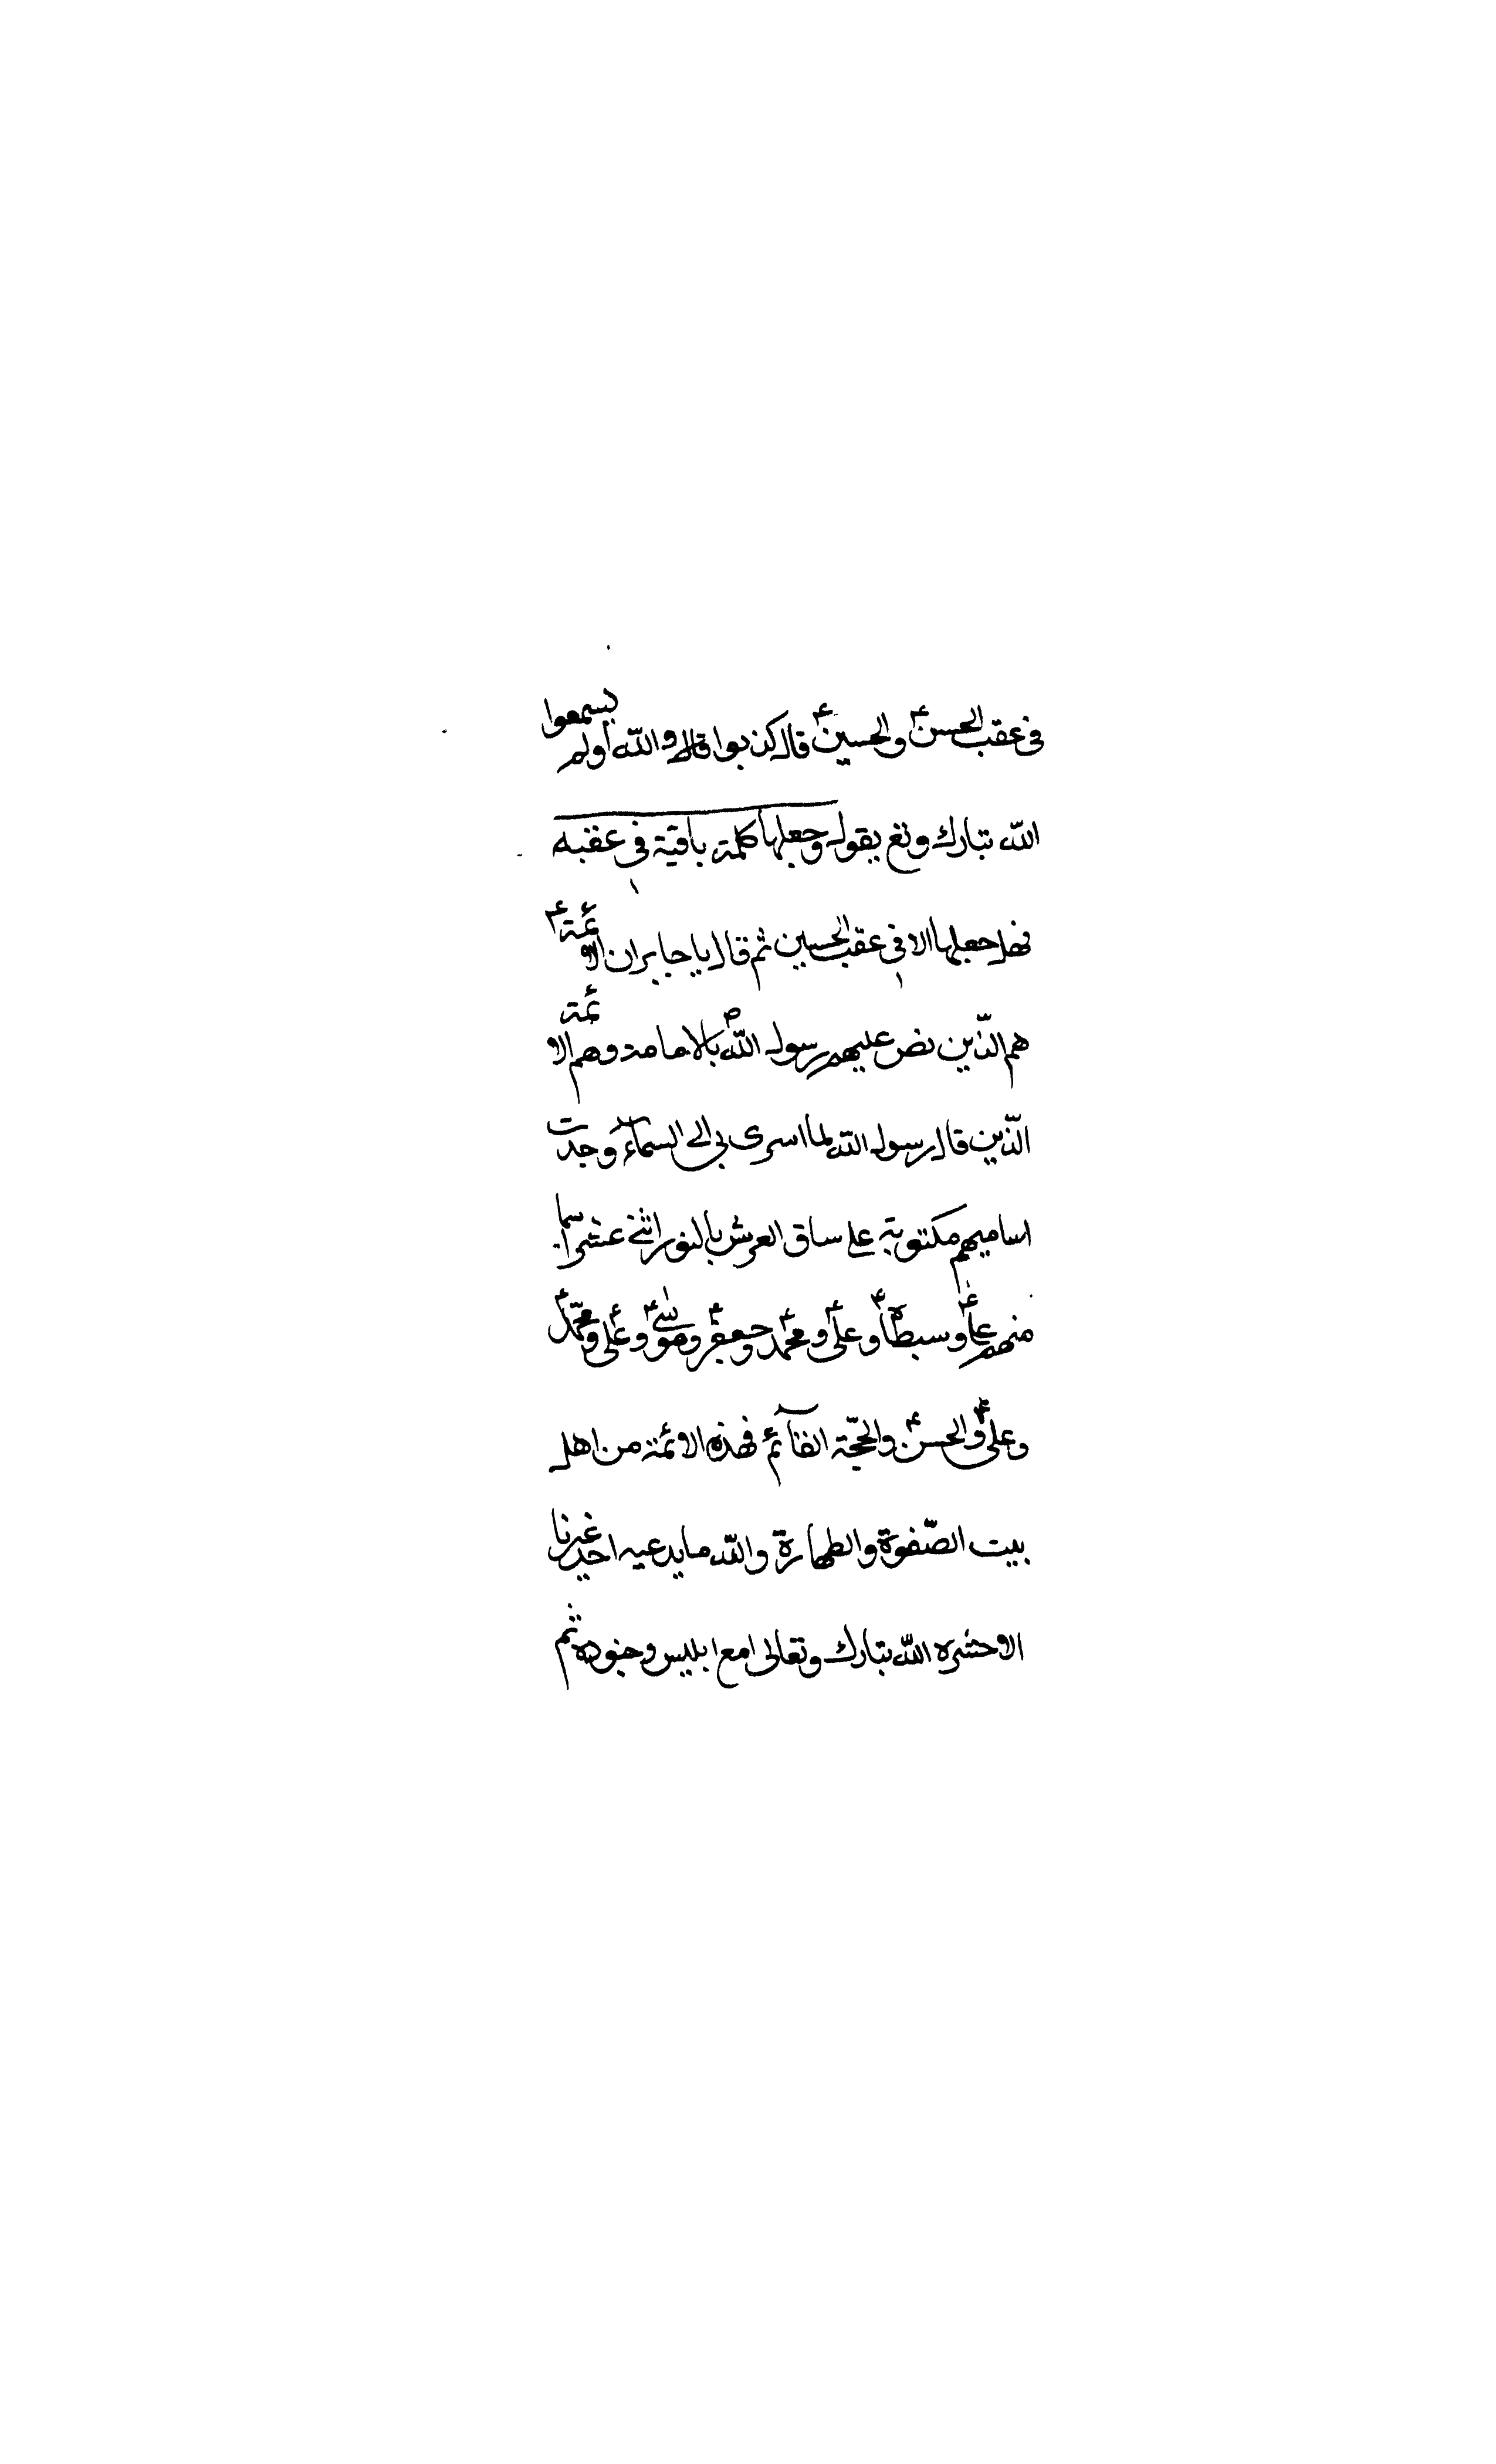 في عقب الحسن ع والحسين ع قال كذبوا قال والله أولم يسمعوا
الله تبارك وتع يقول وجعلها كلمة باقية في عقبه
فهل جعلها الا في عقب الحسين ثم قال يا جابر ان الائمة ع
هم الذّين نص عليهم رسول اللّه ص بالامامة وهم الائمة
الّذين قال رسول اللّه لما اسرى بي الى السمآء وجدت
اساميهم مكتوبة على ساق العرش بالنور اثنى عشر اسما
منهم علي ع وسبطاه ع وعلى ع ومحمد ع وجعفر ع وموسى ع وعلى ع ومحمّد ع
وعلى ع والحسن ع والحجّة القآئم فهذه الائمة من اهل
بيت الصّفوة والطهارة واللّه مايدعيه احد غيرنا
الا حشره اللّه تبارك وتعالى مع ابليس وجنوده ثم